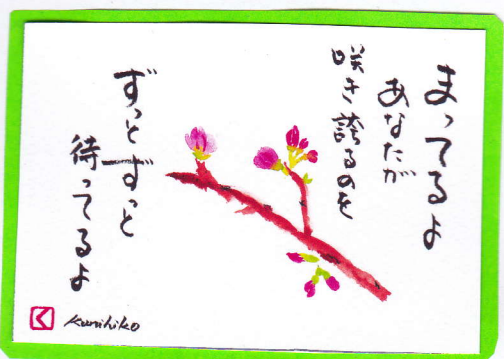 まってるよ
あなたが
咲き誇るのを
ずっとずっと
待ってるよ
く
Kunihiko